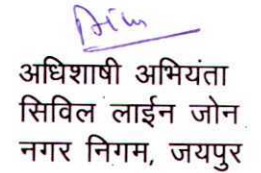 अधिशाषी अभियंता
सिविल लाईन जोन
नगर निगम, जयपुर